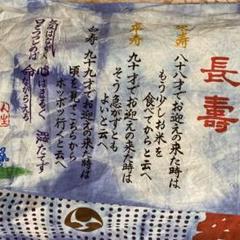 長寿
米寿
八十八才でお迎えの来た時は
もう少しお米を
食べてからと云へ
卒寿
九十才でお迎えの来た時は
そう急がずとも
よいと云へ
白寿
九十九才でお迎えの来た時は
頃を見てこちらから
ボツボツ行くと云へ
気はながく
心はまるく 腹たてず
口つつしめば
命ながらえる